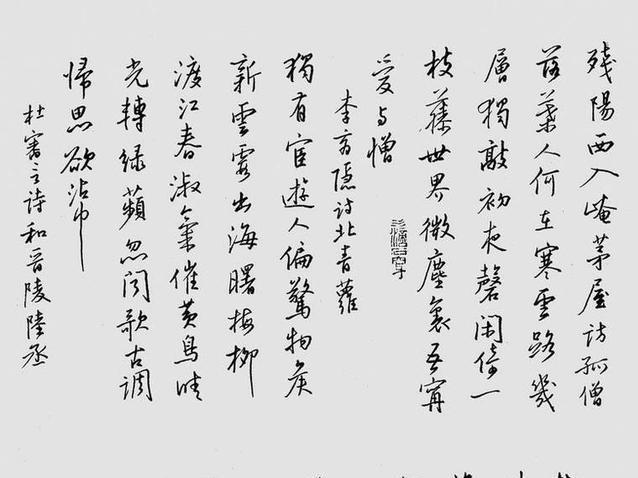 殘陽西入崦茅屋訪孤僧
落葉人何在寒雲路幾
層獨敲初夜磬閑倚一
枝藤世界微塵裏吾甯
愛与憎
李商隱詩北青蘿
獨有宦遊人偏驚物矦
新雲霞出海曙梅柳
渡江春淑氣催黃鳥晴
光轉綠蘋忽聞歌古調
歸思欲沾巾
杜審言詩和晉陵陸丞